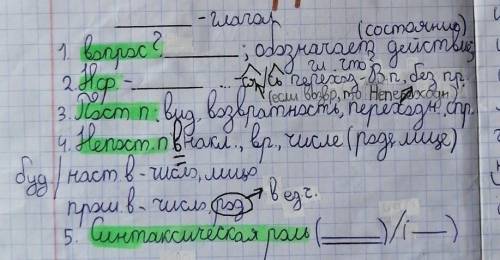 ________ - глагол
(состояние)
1. вопрос? ________; обозначает действие
2. Нф. - ________ ... ть, ся переход - В.п., без пр.
чи, что?
(если возвр, то Непереходн)
3. Пост. п. вид, возвратность, переходн., спр.
4. Непост. п в накл., вр., числе (роде, лице)
буд / наст. в - число, лицо
прош. в - число, род → в ед. ч.
5. Синтаксическая роль (____) / (____)